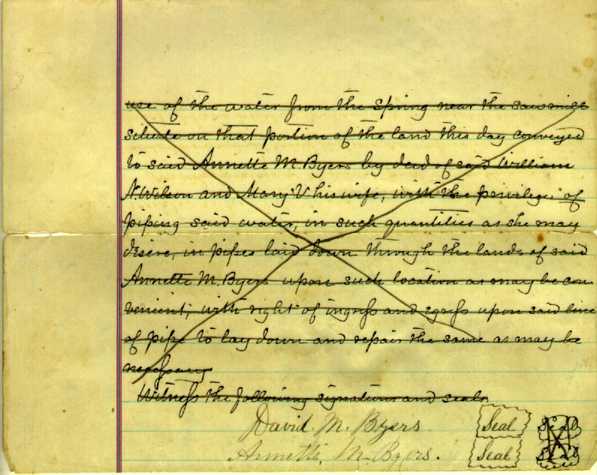 use of the water from the Spring near the saw mill
situate on that portion of the land this day conveyed
to said Annette M. Byers by deed of said William
N. Wilson and Mary V his wife, with the privilege of
piping said water, in such quantities as she may
desire, in pipes laid down through the lands of said
Annette M. Byers upon such location as may be con
venient, with right of ingress and egress upon said line
of pipe to lay down and repair the same as may be
necessary
Witness the following signatures and seals
David M. Byers Seal Seal
Annette M. Byers. Seal Seal